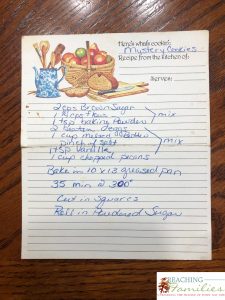 Here's what's cookin':
Mystery Cookies
Recipe from the kitchen of:
Serves:
2 cps Brown Sugar
1 tsp baking Powder
mix
2 Beaten eggs
1 cup melted
pinch of salt
1 tsp vanilla
mix
1 cup chopped pecans
Bake in 10 x 13 greased pan
35 min @ 300°
Cut in Squares
Roll in Powdered Sugar
REACHING
Families